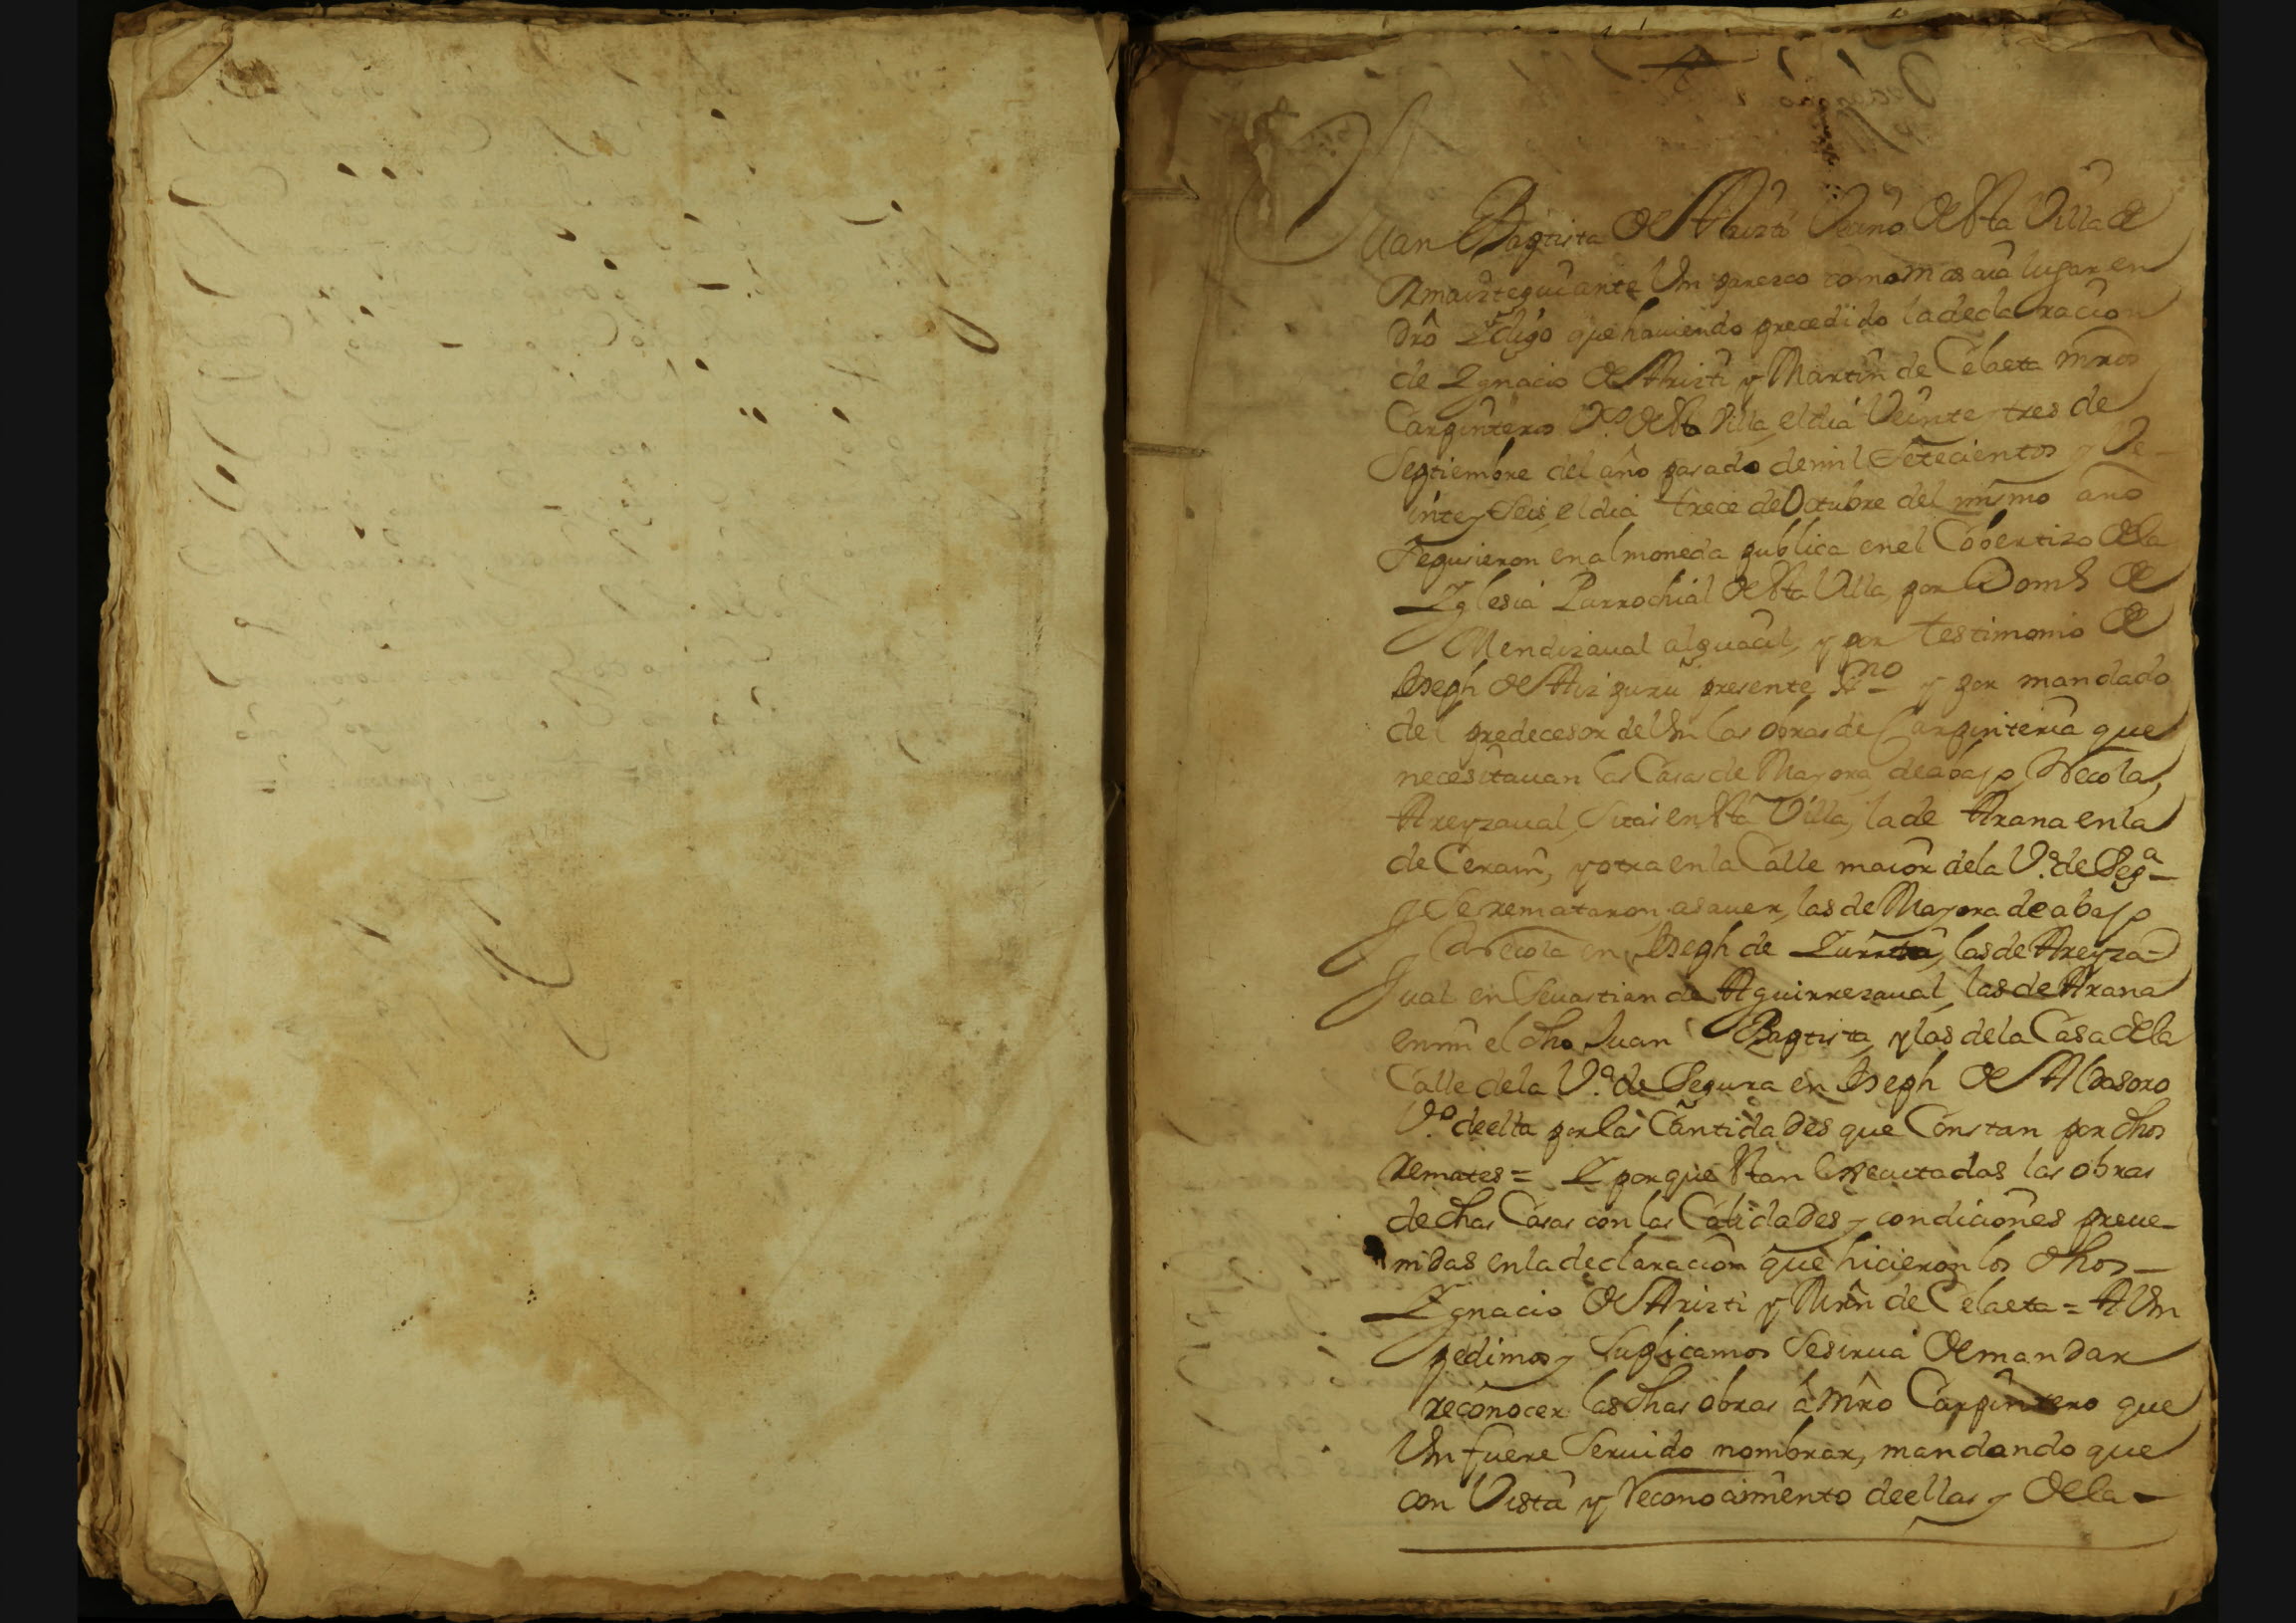 Juan Baptista de Arizti Vecino de esta Villa de
Amaiztegui ante Vm paresco como mas aia lugar en
dro Y digo que haviendo precedido la declaracion
de Ygnacio de Arizti y Martin de Celaeta mros
Carpinteros Vs de esta Villa, el dia Veinte y tres de
Septiembre del año pasado de mil Setecientos y Ve-
inte y Seis, el dia trece de Octubre del mismo año
Se pusieron en almoneda publica en el Cobertizo de la
Yglesia Parrochial de esta Villa, por Doms de
Mendizaual alguacil, y por testimonio de
Joseph de Aizpuru presente Sno y por mandado
del predecesor de Vm las obras de Carpinteria que
necesitauan las Casas de Mayora de abajo,
Areyzaual, Sitas en esta Villa, la de Arana en la
de Cerain, y otra en la Calle maior de la Va. de Sega
q Se remataron asauer, las de Mayora de abajo
en Joseph de las de Areyza-
ual en Seuastian de Aguirrezaual, las de Arana
en mi el dho Juan Baptista, y las de la Casa de la
Calle de la Va. de Segura en Joseph de Albasoro
Vo. de ella por las Cantidades que Constan por dhos
remates = Y porque estan executadas las obras
de dhas Casas con las Calidades y condiciones preue-
nidas en la declaracion que hicieron los dhos
Ygnacio de Arizti y Mrn de Celaeta = A Vm
pedimos y Suplicamos Se sirua de mandar
reconocer las dhas obras â Mro Carpintero que
Vm fuere Seruido nombrar, mandando que
con Vista y reconocimiento de ellas y de la